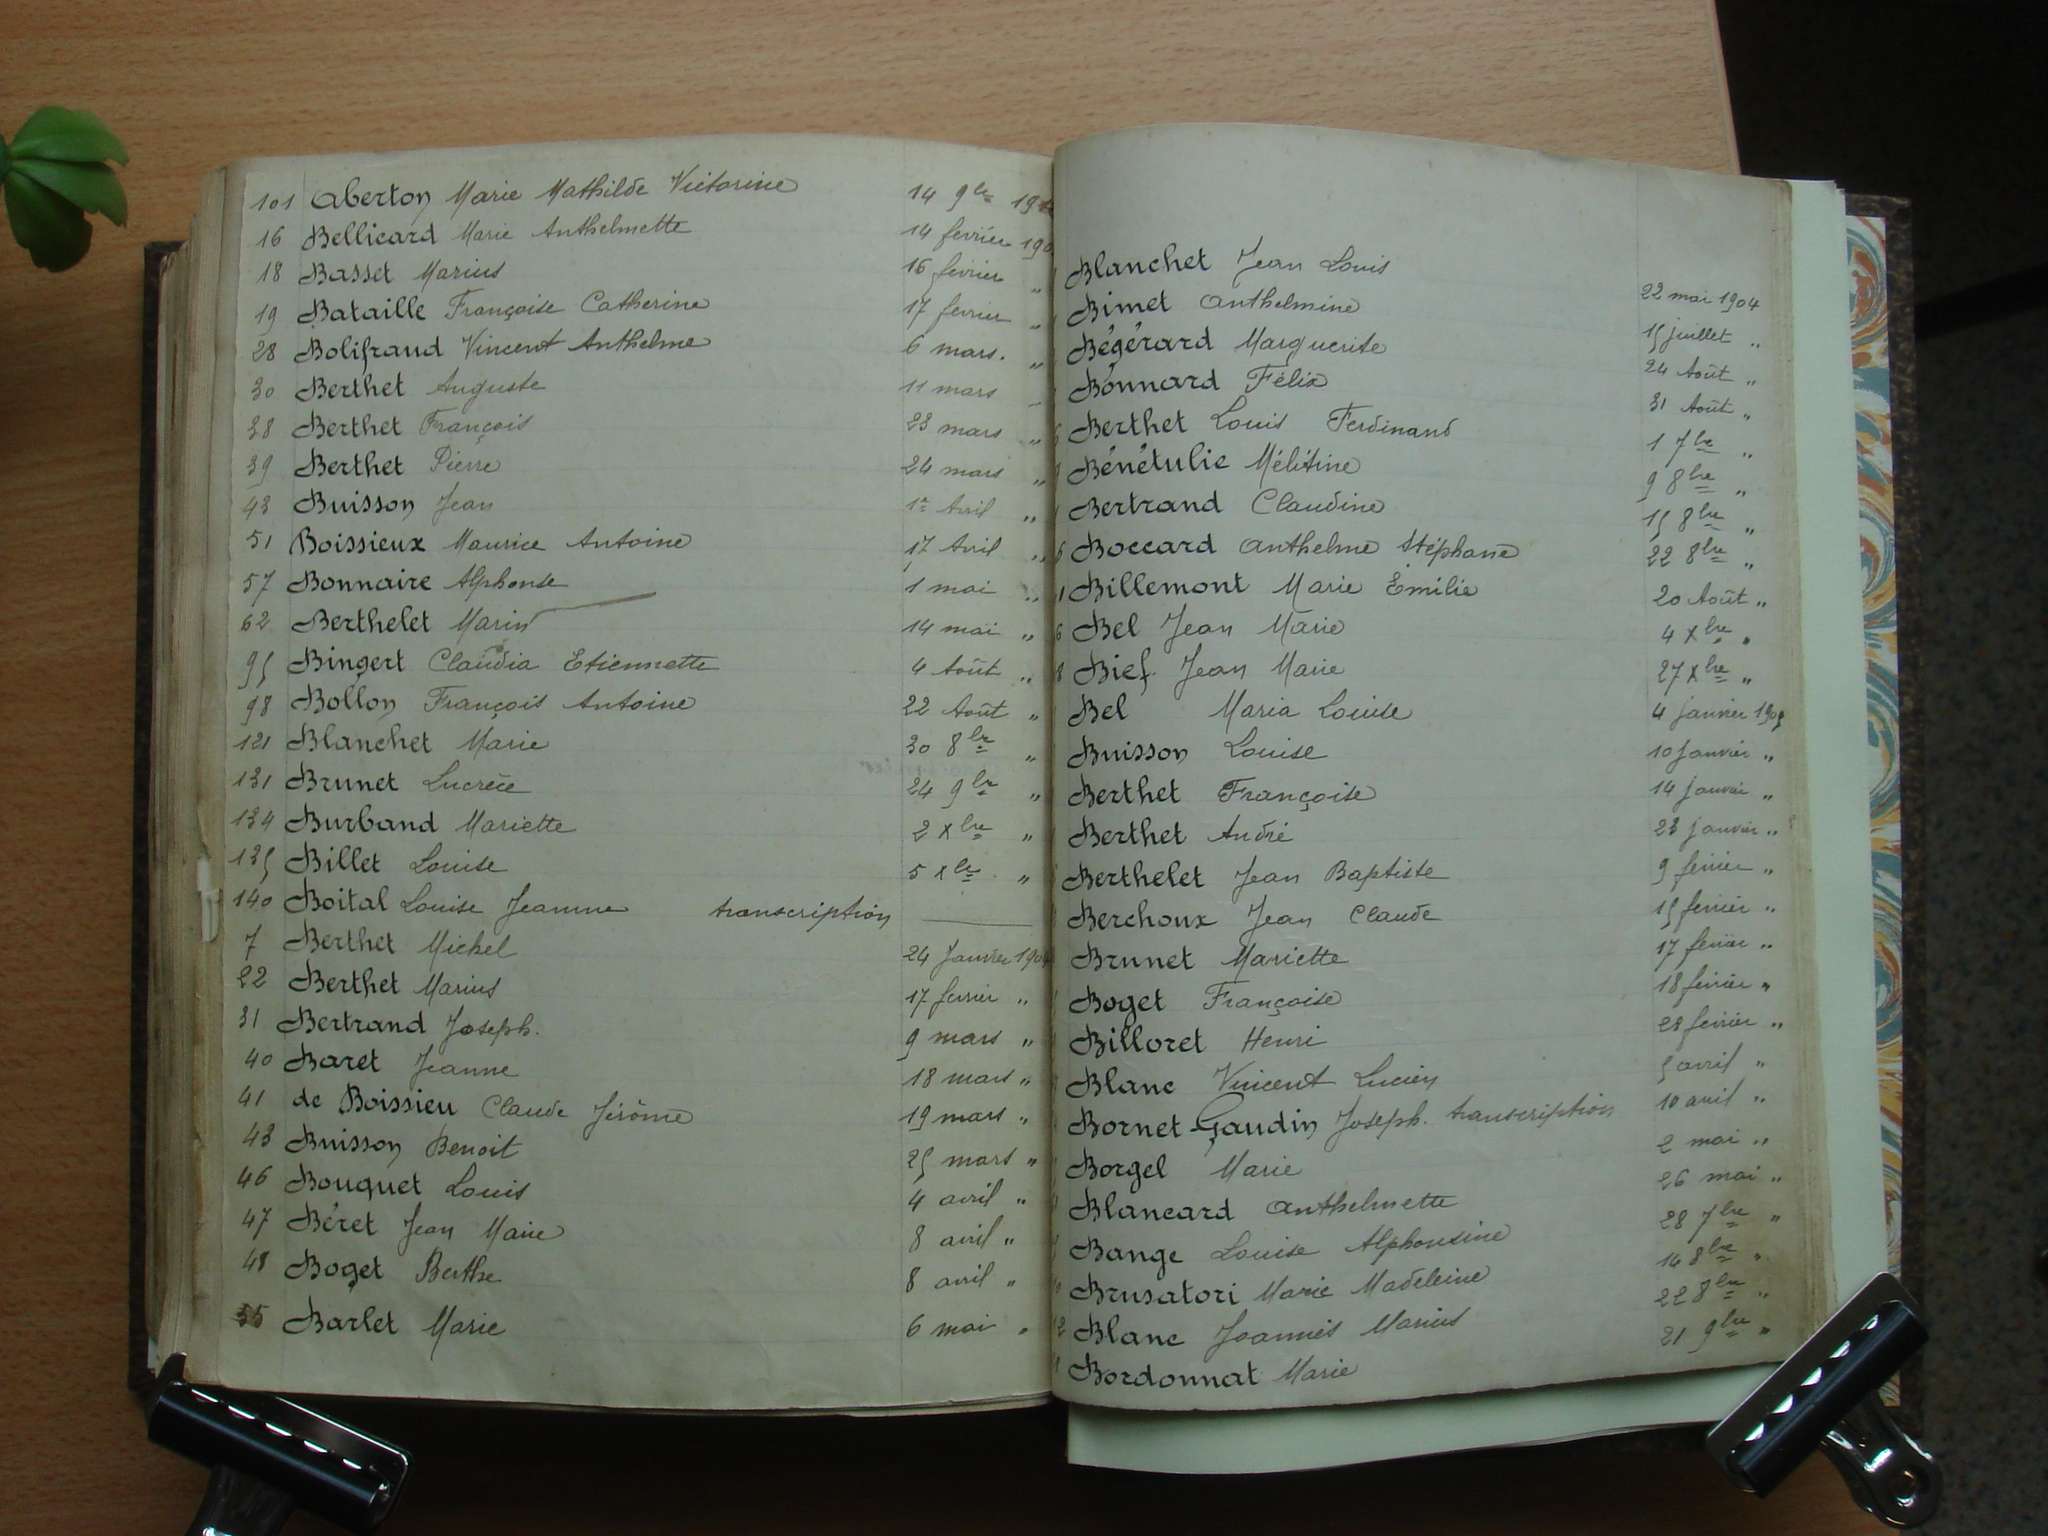 101 Aberton Marie Mathilde Victorine 14 9bre
16 Bellicard Marie Anthelmette 14 fevrier 190
18 Basset Marius 16 fevrier "
19 Bataille Françoise Catherine 17 fevrier "
28 Bolifraud Vincent Anthelme 6 mars. "
30 Berthet Auguste 11 mars
38 Berthet François 23 mars "
39 Berthet Pierre 24 mars "
43 Buisson Jean 1er Avril "
51 Boissieux Maurice Antoine 17 Avril "
57 Bonnaire Alphonse 1 mai "
62 Berthelet Marin 14 mai "
95 Bingert Claudia Etiennette 4 Août "
98 Bollon François Antoine 22 Août "
121 Blanchet Marie 30 8bre "
131 Brunet Lucrèce 24 9bre "
134 Burband Mariette 2 Xbre "
135 Billet Louise 5 Xbre "
140 Boital Louise Jeanne transcription
7 Berthet Michel 24 Janvier 1904
22 Berthet Marius 17 fevrier "
31 Bertrand Joseph. 9 mars "
40 Baret Jeanne 18 mars "
41 de Boissieu Claude Jérôme 19 mars "
43 Buisson Benoit 25 mars "
46 Bouquet Louis 4 avril "
47 Béret Jean Marie 8 avril "
48 Boget Berthe 8 avril "
55 Barlet Marie 6 mai "
Blanchet Jean Louis 22 mai 1904
Bimet Anthelmine 15 juillet "
Bégérard Marguerite 24 Août "
Bonnard Félix 31 Août "
Berthet Louis Ferdinand 1 7bre "
Bénétulie Mélitine 9 8bre "
Bertrand Claudine 15 8bre "
Boccard Anthelme Stéphane 22 8bre "
Billemont Marie Émilie 20 Août "
Bel Jean Marie 4 Xbre "
Bief Jean Marie 27 Xbre "
Bel Maria Louise 4 janvier 1905
Buisson Louise 10 Janvier "
Berthet Françoise 14 janvier "
Berthet André 23 janvier "
Berthelet Jean Baptiste 9 février "
Berchoux Jean Claude 15 fevrier "
Brunet Mariette 17 fevrier "
Boget Françoise 18 février "
Billoret Henri 28 fevrier "
Blanc Vincent Lucien 5 avril "
Bornet-Gaudin Joseph. transcription 10 avril "
Borgel Marie 2 mai "
Blancard Anthelmette 26 mai "
Bange Louise Alphonsine 28 7bre "
Brusatori Marie Madeleine 14 8bre "
Blanc Joannès Marius 22 8bre "
Bordonnat Marie 21 9bre "